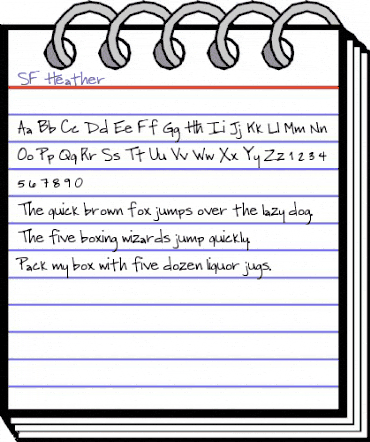 SF Heather
Aa Bb Cc Dd Ee Ff Gg Hh Ii Jj Kk Ll Mm Nn
Oo Pp Qq Rr Ss Tt Uu Vv Ww Xx Yy Zz 1 2 3 4
5 6 7 8 9 0
The quick brown fox jumps over the lazy dog.
The five boxing wizards jump quickly.
Pack my box with five dozen liquor jugs.